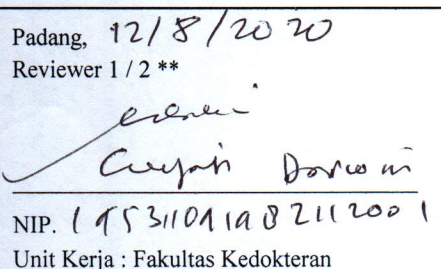 Padang, 12/8/2020
Reviewer 1 / 2 **
NIP. 195311091982112001
Unit Kerja : Fakultas Kedokteran